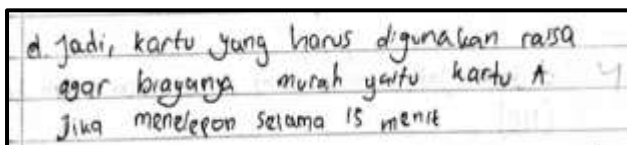 d. Jadi, kartu yang harus digunakan raisa
agar biayanya murah yaitu kartu A
Jika menelepon selama 15 menit